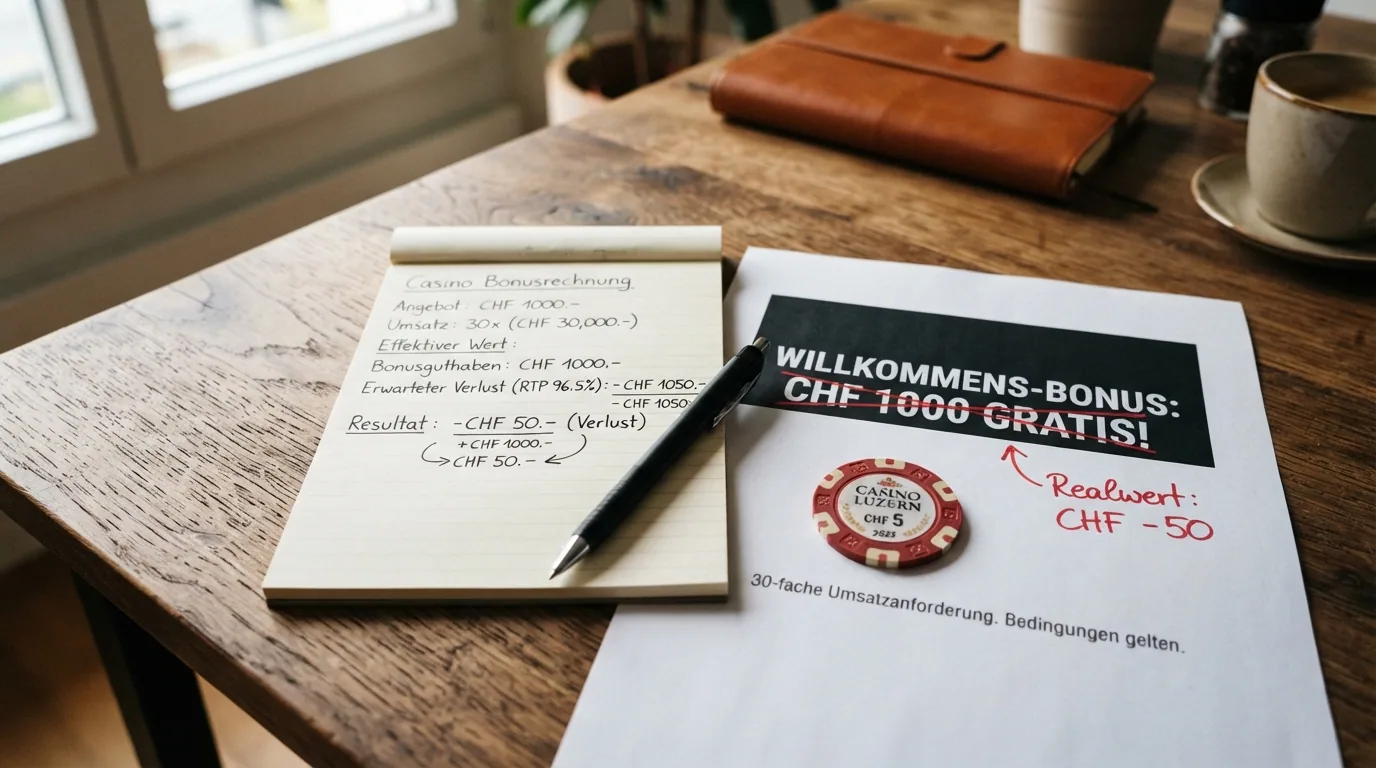 Casino Bonusrechnung
Angebot: CHF 1000.-
Umsatz: 30x (CHF 30,000.-)
Effektiver Wert:
Bonusguthaben: CHF 1000.-
Erwarteter Verlust (RTP 96.5%): -CHF 1050.-
-CHF 1050.-
Resultat: -CHF 50.- (Verlust)
+CHF 1000.-
CHF 50.-
WILLKOMMENS-BONUS:
CHF 1000 GRATIS!
Realwert:
CHF -50
CASINO
LUZERN
CHF 5
30-fache Umsatzanforderung. Bedingungen gelten.